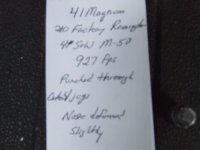 41 Magnum
210 Factory Remington
4" S&W M-57
927 fps
Punched through
jugs
Nose deformed
Slightly